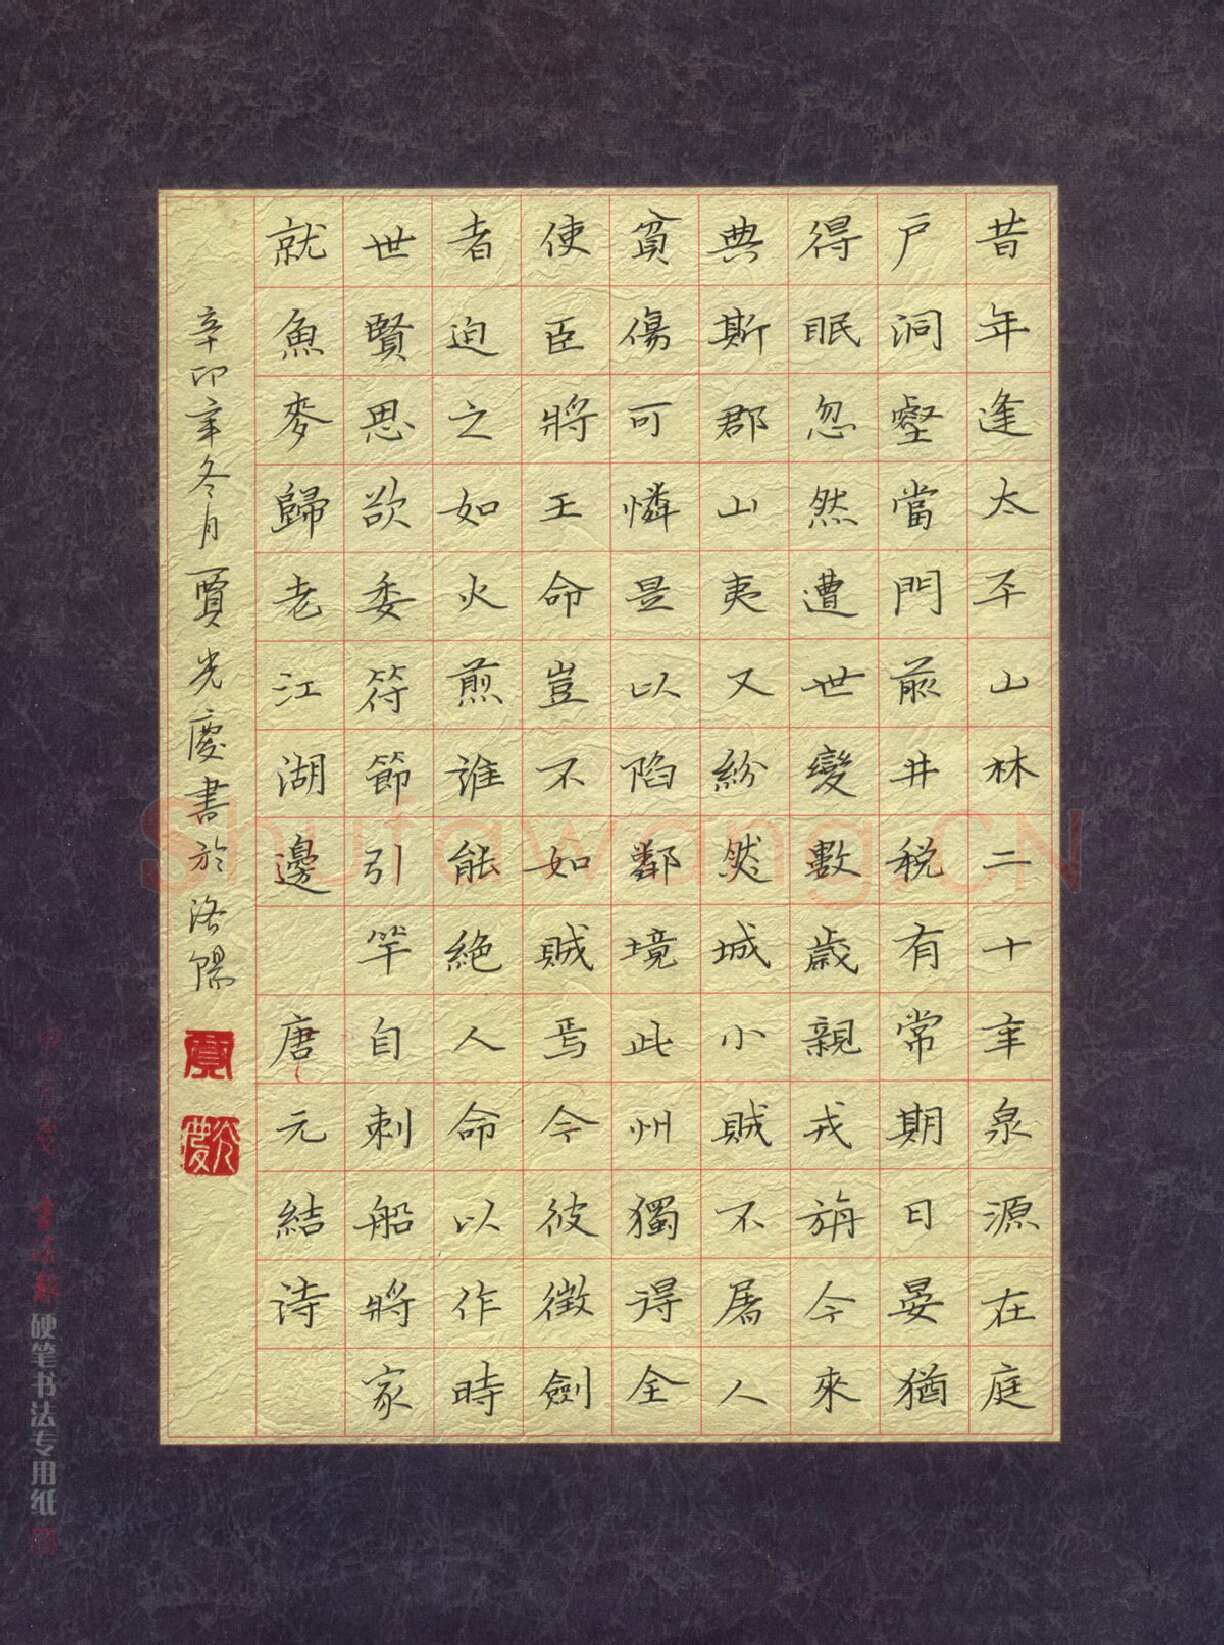 昔年逢太平山林二十年泉源在庭
戶洞壑當門前井稅有常期日晏猶
得眠忽然遭世變數歲親戎旃今來
典斯郡山夷又紛然城小賊不屠人
貧傷可憐是以陷鄰境此州獨得全
使臣將王命豈不如賊焉今彼徵斂
者迫之如火煎誰能絕人命以作時
世賢思欲委符節引竿自刺船將家
就魚麥歸老江湖邊 唐元結詩
辛卯年冬月賈光慶書於洛陽
Shufawang.CN
硬笔书法专用纸